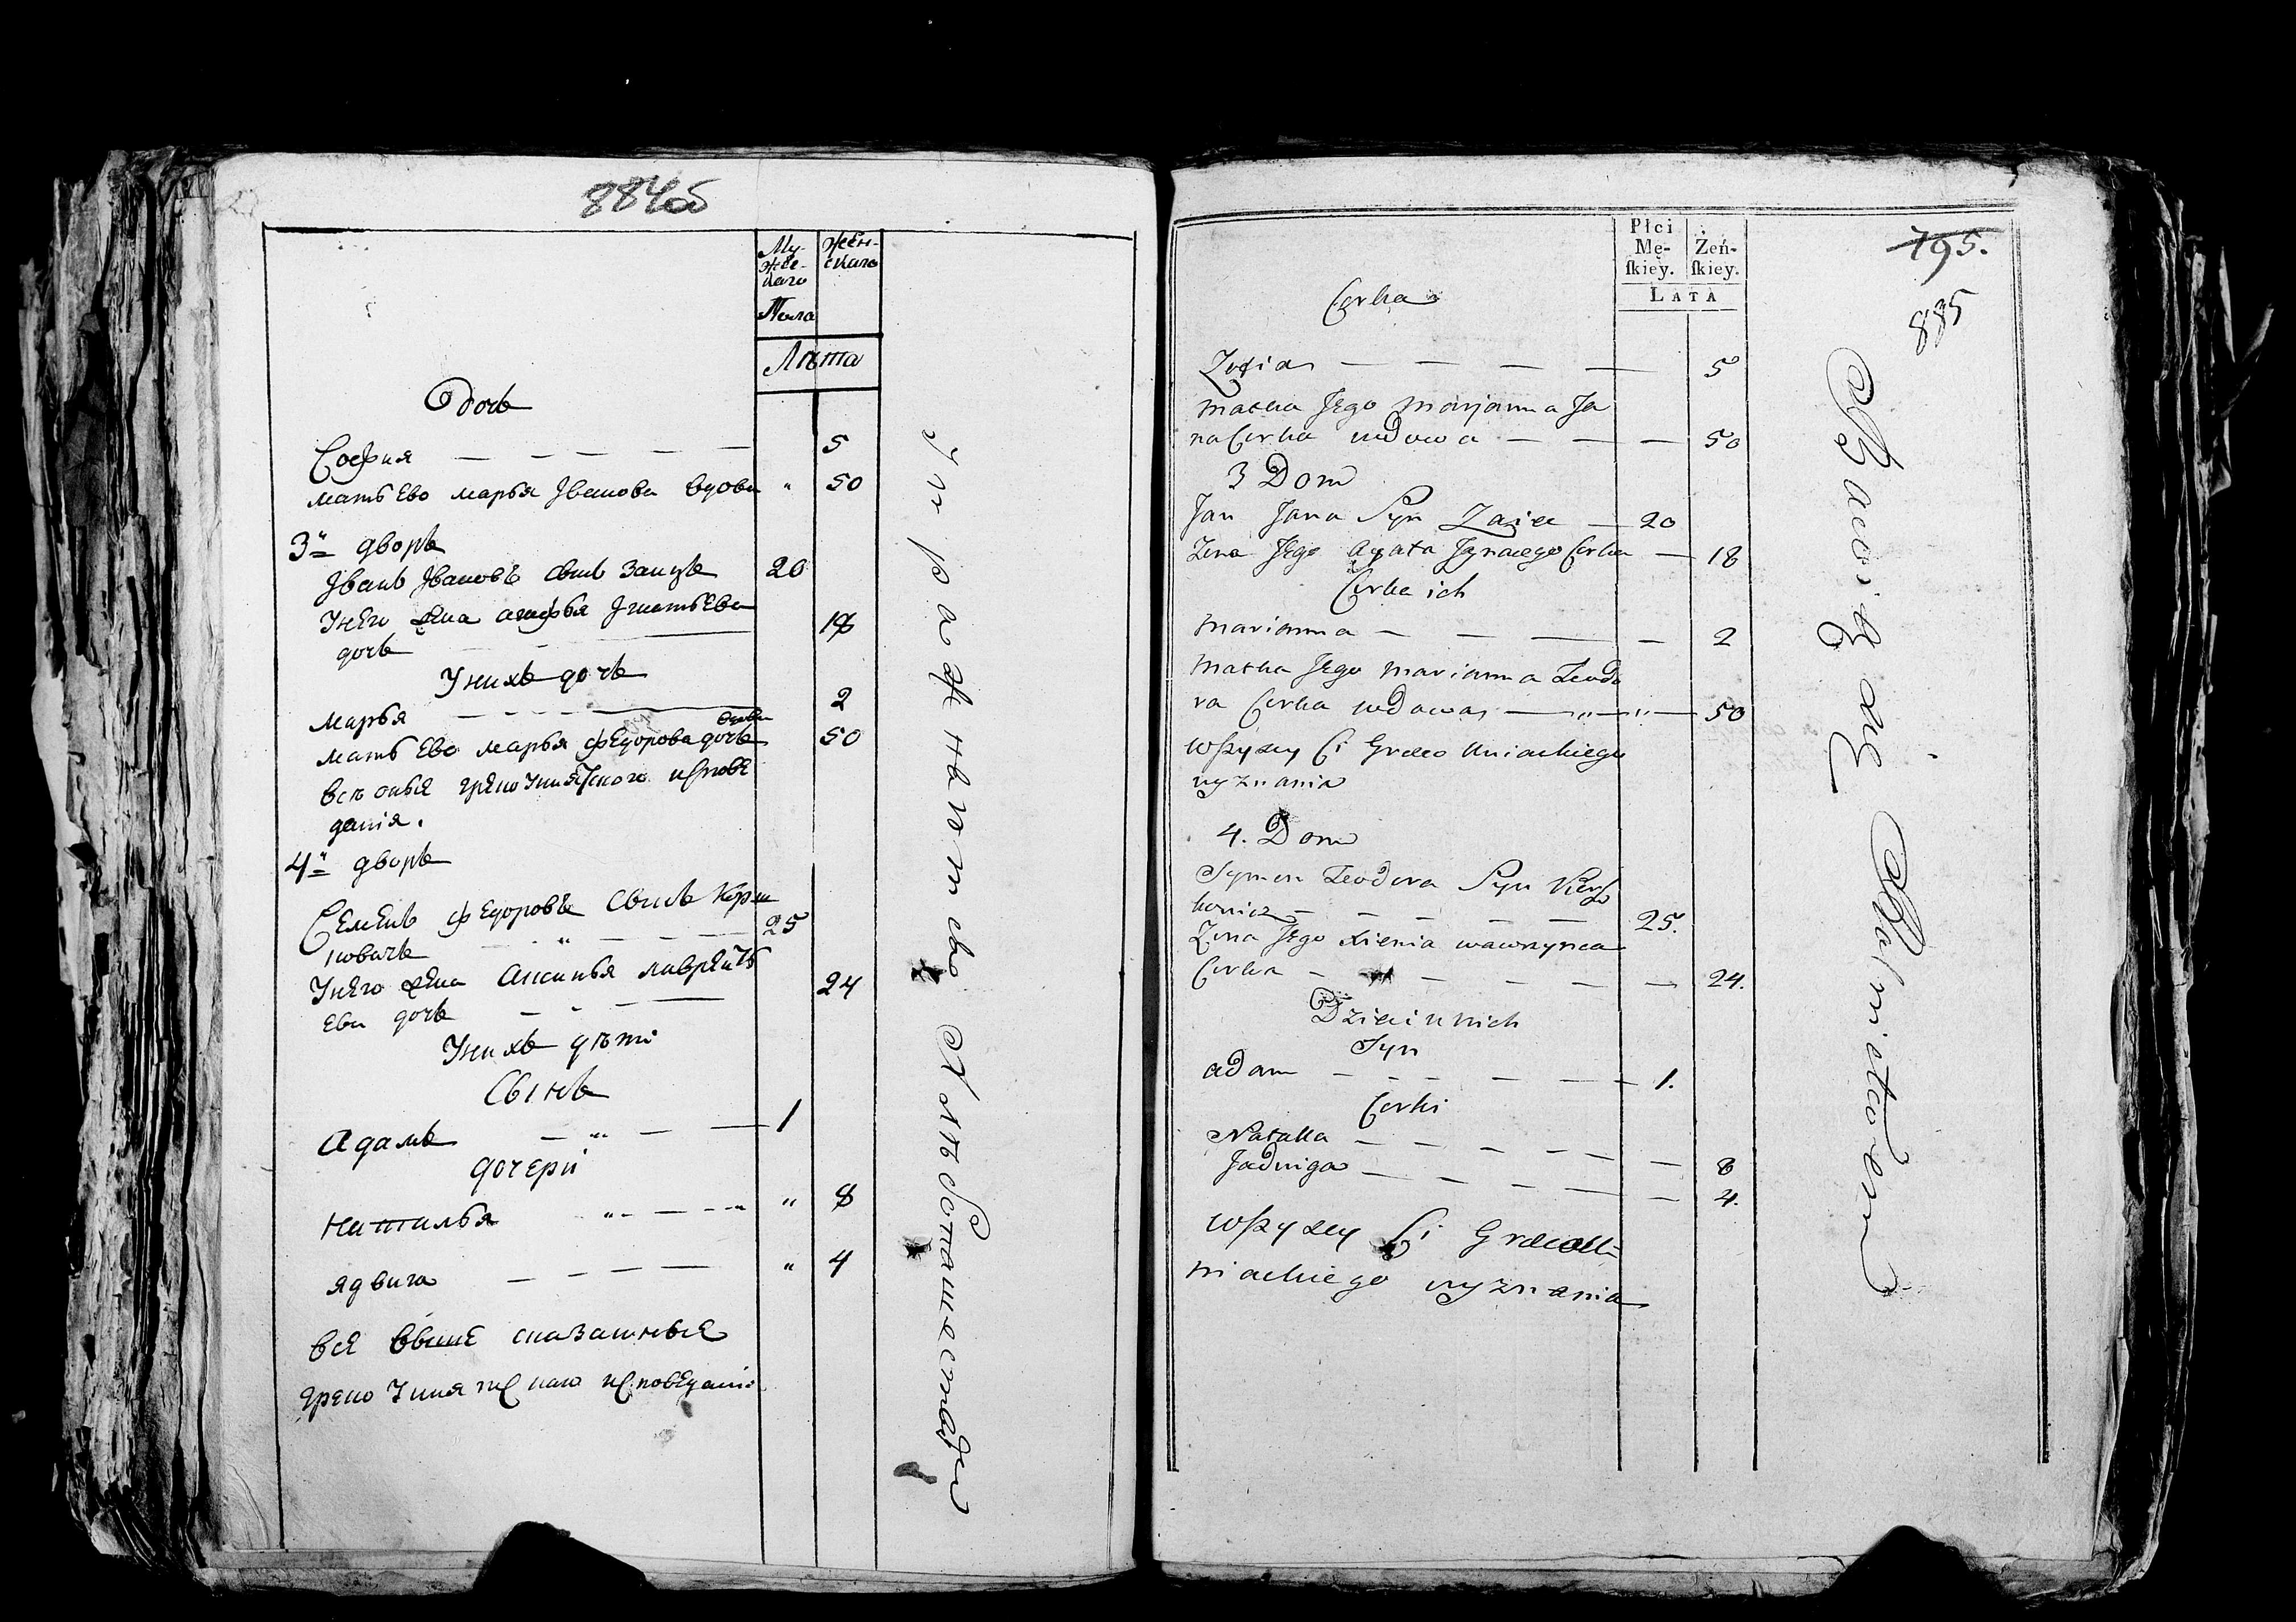 884об
Му-
жес-
каго
Пола
Жен-
скаго
Лѣта
Дочь
София — — — — — 5
мать Ево марья Іванова вдова „ 50
3й дворъ
Іванъ Івановъ сынъ Заицъ 20
Унего жена агафья Ігнатьева
дочь — — — 18
Унихъ дочь
марья — — — 2
вдова
мать Ево марья Федорова дочь 50
всѣ оныя греко униятского исповѣ
дания.
4й дворъ
Семенъ Федоровъ сынъ Кирш
новичъ — „ — — — 25
Унего жена Аксинья лаврѣнть
Ева дочь — — — 24
Унихъ дѣти
Сынъ
Адамъ — „ — — 1
дочери
натилья „ — — — „ „ 8
ядвига — — — — „ 4
всѣ выше сказанныя
греко Униятскаго исповедания
795.
885
Płci
Mę-
ſkiey.
Żeń-
ſkiey.
LATA
Corka
Zofia — — — — 5
matka Jego marjanna Ja
na Corka wdowa — — — 50
3 Dom
Jan Jana Syn Zaiec — 20
Zona Jego Agata Jgnacego Corka — 18
Corka ich
marianna — — — — 2
matka Jego marianna Teodo
ra Corka wdowa — „ — „ — 50
wszyscy Ci Greco Uniackiego
wyznania
4. Dom
Symon Teodora Syn Kirsz
nowicz — — — — — 25.
Zona Jego Xienia wawrzynca
Corka — — — — — 24.
Dzieci u nich
Syn
adam — — — — — 1.
Corki
Natalla — — — — — 8
Jadwiga — — — — — 4.
wszyscy Ci Grecou=
niackiego wyznania